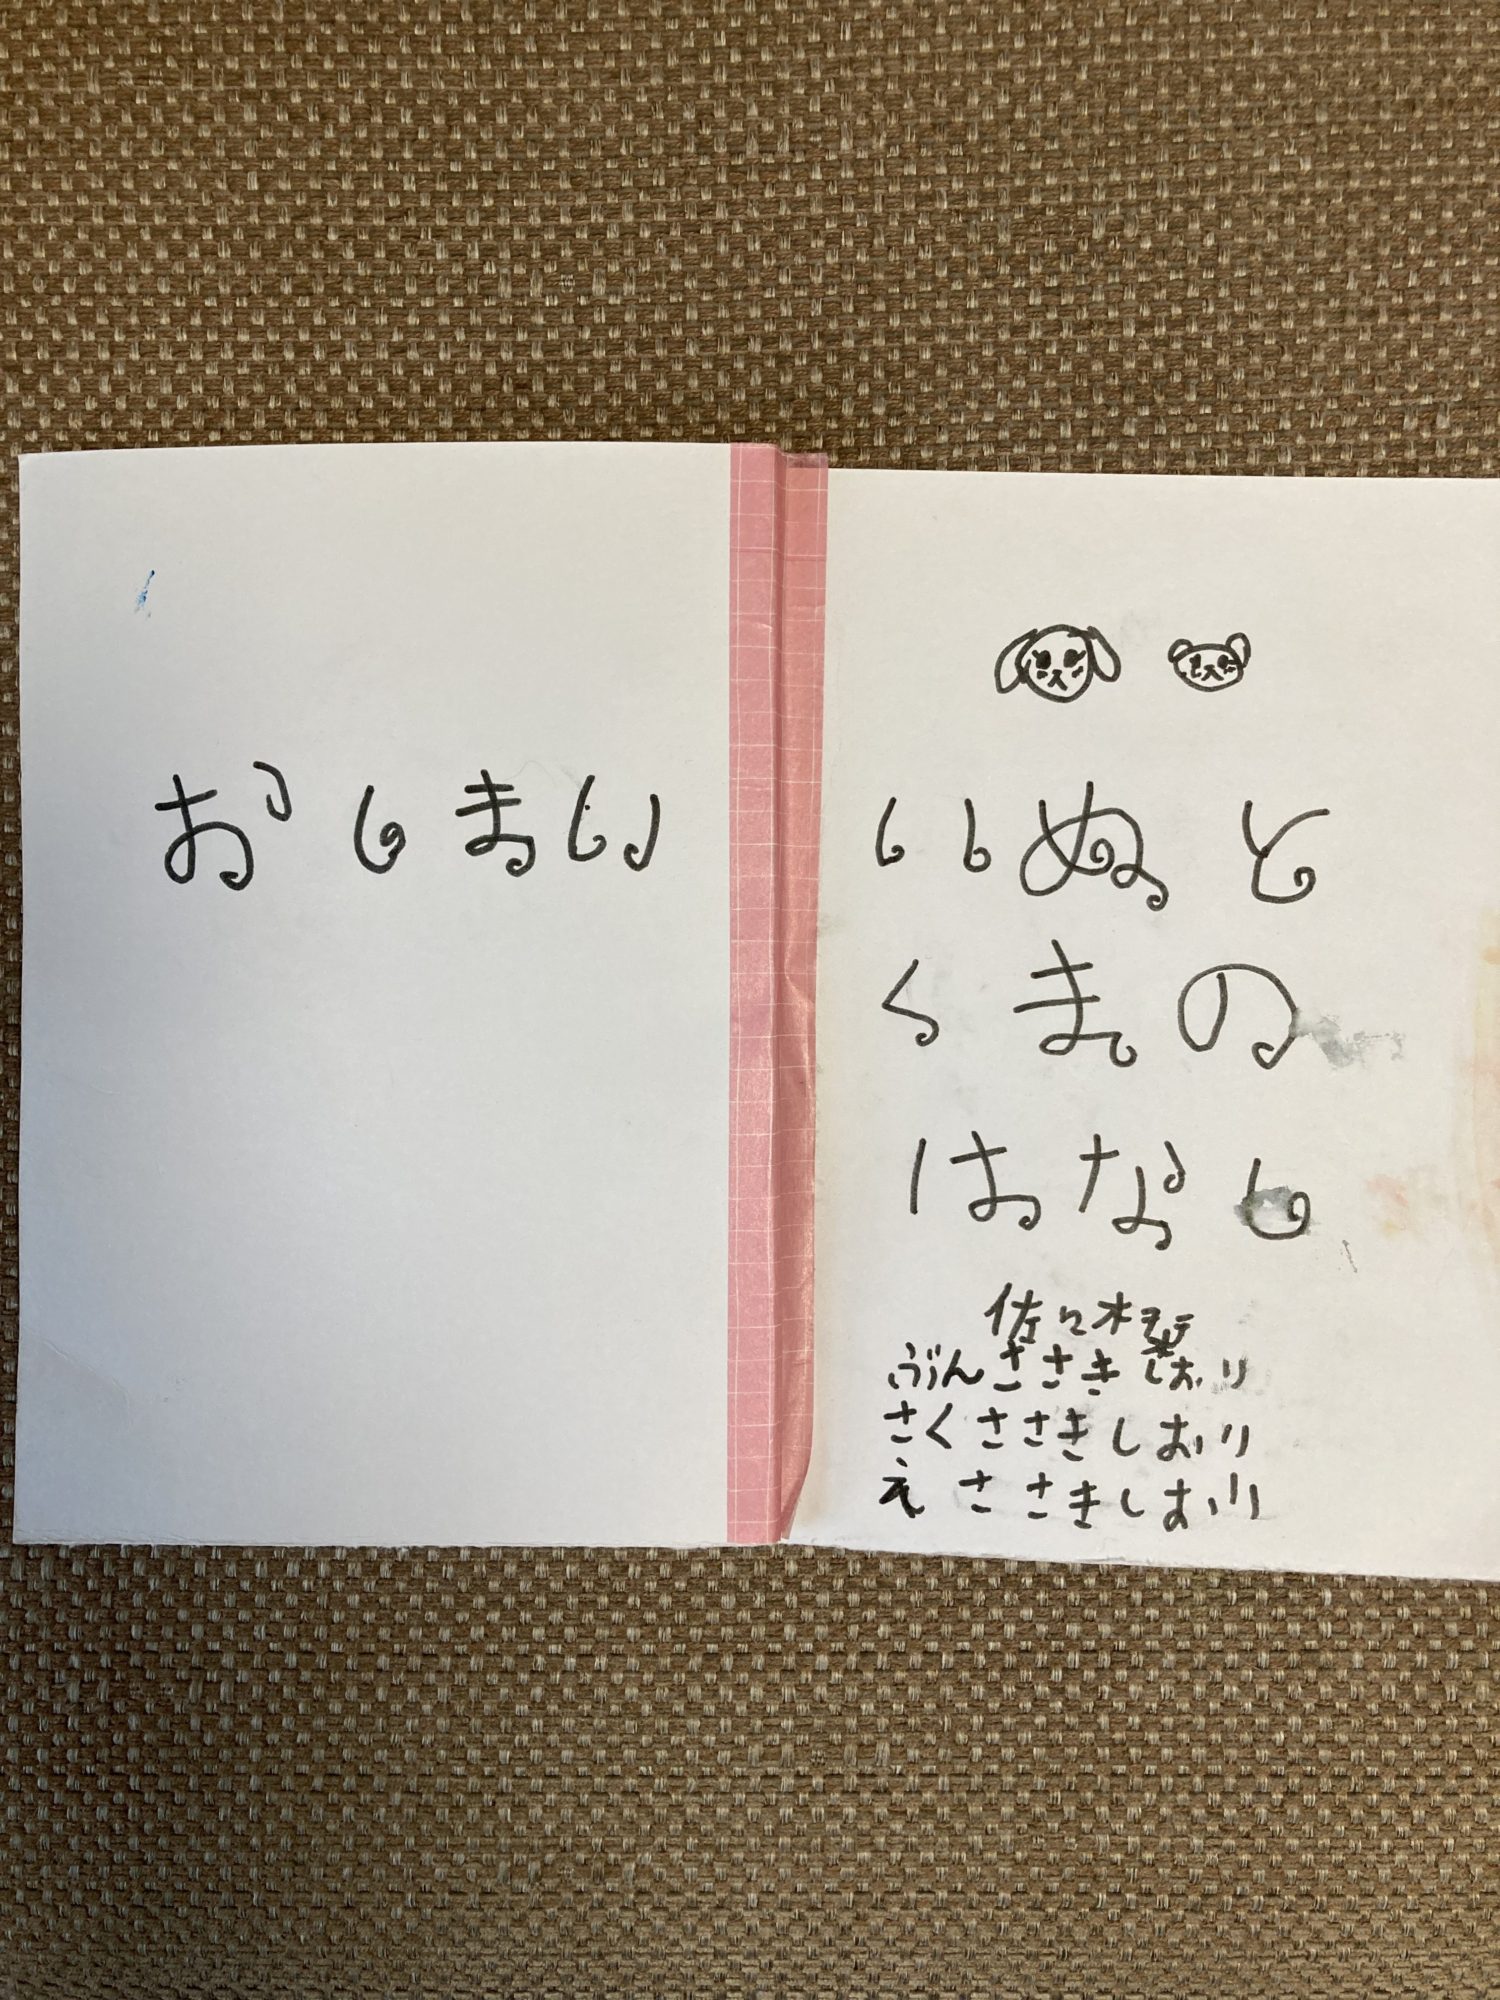 いぬと
くまの
はなし
佐々木栞
ぶんささきしおり
さくささきしおり
え ささきしおり
おしまい